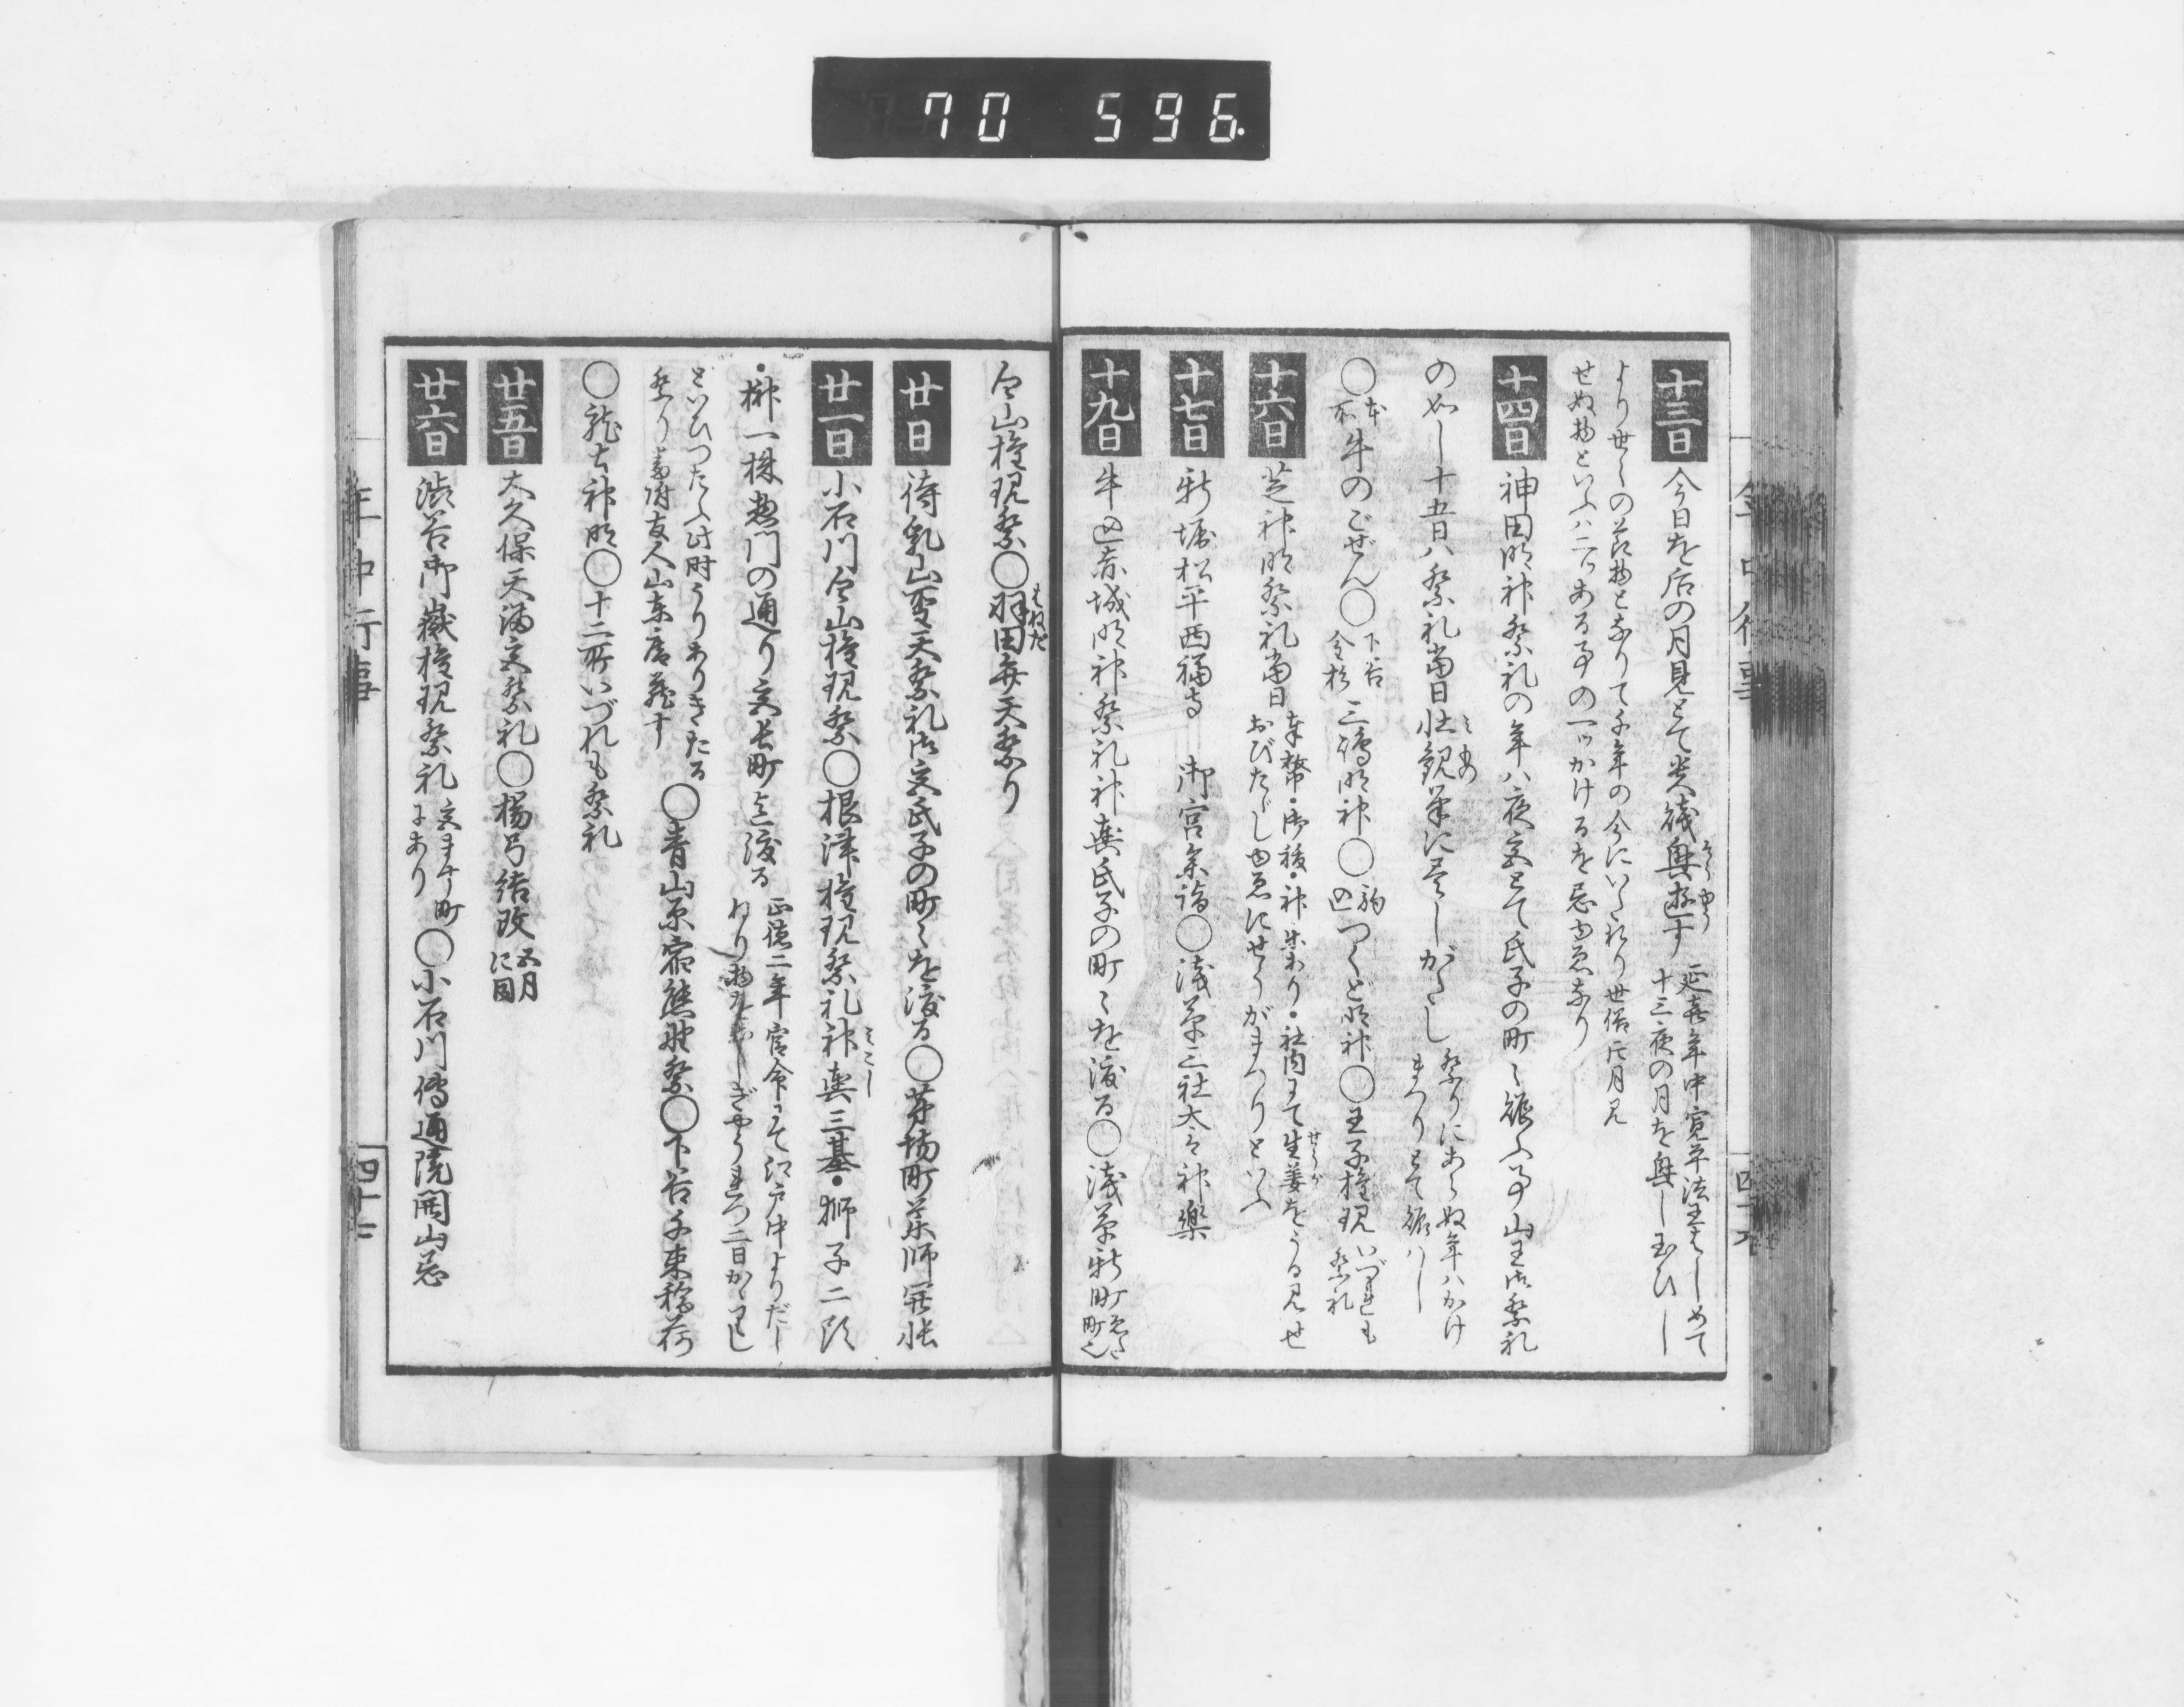 70 596
十三日 今日を后の月見とて貴賤興遊す 延喜年中寛平法王はじめて
十三夜の月を興し玉ひし
より世々の節物となりて千年の今にいたれり世俗片月見
せぬ物といふは二つある事の一ッかけるを忌ゆゑなり
十四日 神田明神祭礼の年ハ夜宮とて氏子の町々賑ふ事山王御祭礼
の如し十五日ハ祭礼当日壮観筆に尽しがたし 祭りにあらぬ年ハかげ
まつりとて賑ハし
〇本所牛のごぜん〇下谷金杉三嶋明神〇駒込つくど明神〇王子権現 いづれも
祭礼
十六日 芝神明祭礼当日 奉幣・御祓・神楽あり・社内にて生姜をうる見せ
おびたゞしゆゑにせうがまつりといふ
十七日 新堀松平西福寺 御宮参詣〇浅草三社太々神楽
十九日 牛込赤城明神祭礼神輿氏子の町々を渡る〇浅草新町
白山権現祭〇羽田弁天祭り
廿日 待乳山聖天祭礼御宮氏子の町々を渡る〇茅場町薬師開帳
廿一日 小石川白山権現祭〇根津権現祭礼神輿三基・獅子二頭
・榊一株惣門の通り宮永町を渡る 正徳二年官令にて江戸中よりだし
ねり物を出し
といひつたふ此時うりありきたる
祭り 番附友人山東庵蔵す 〇青山原宿熊野祭〇下谷千束稲荷
〇龍土神明〇十二所いづれも祭礼
廿五日 大久保天満宮祭礼〇楊弓結改 五月
に同
廿六日 渋谷御嶽権現祭礼 宮ます町
にあり 〇小石川傳通院開山忌
年中行事
四十七